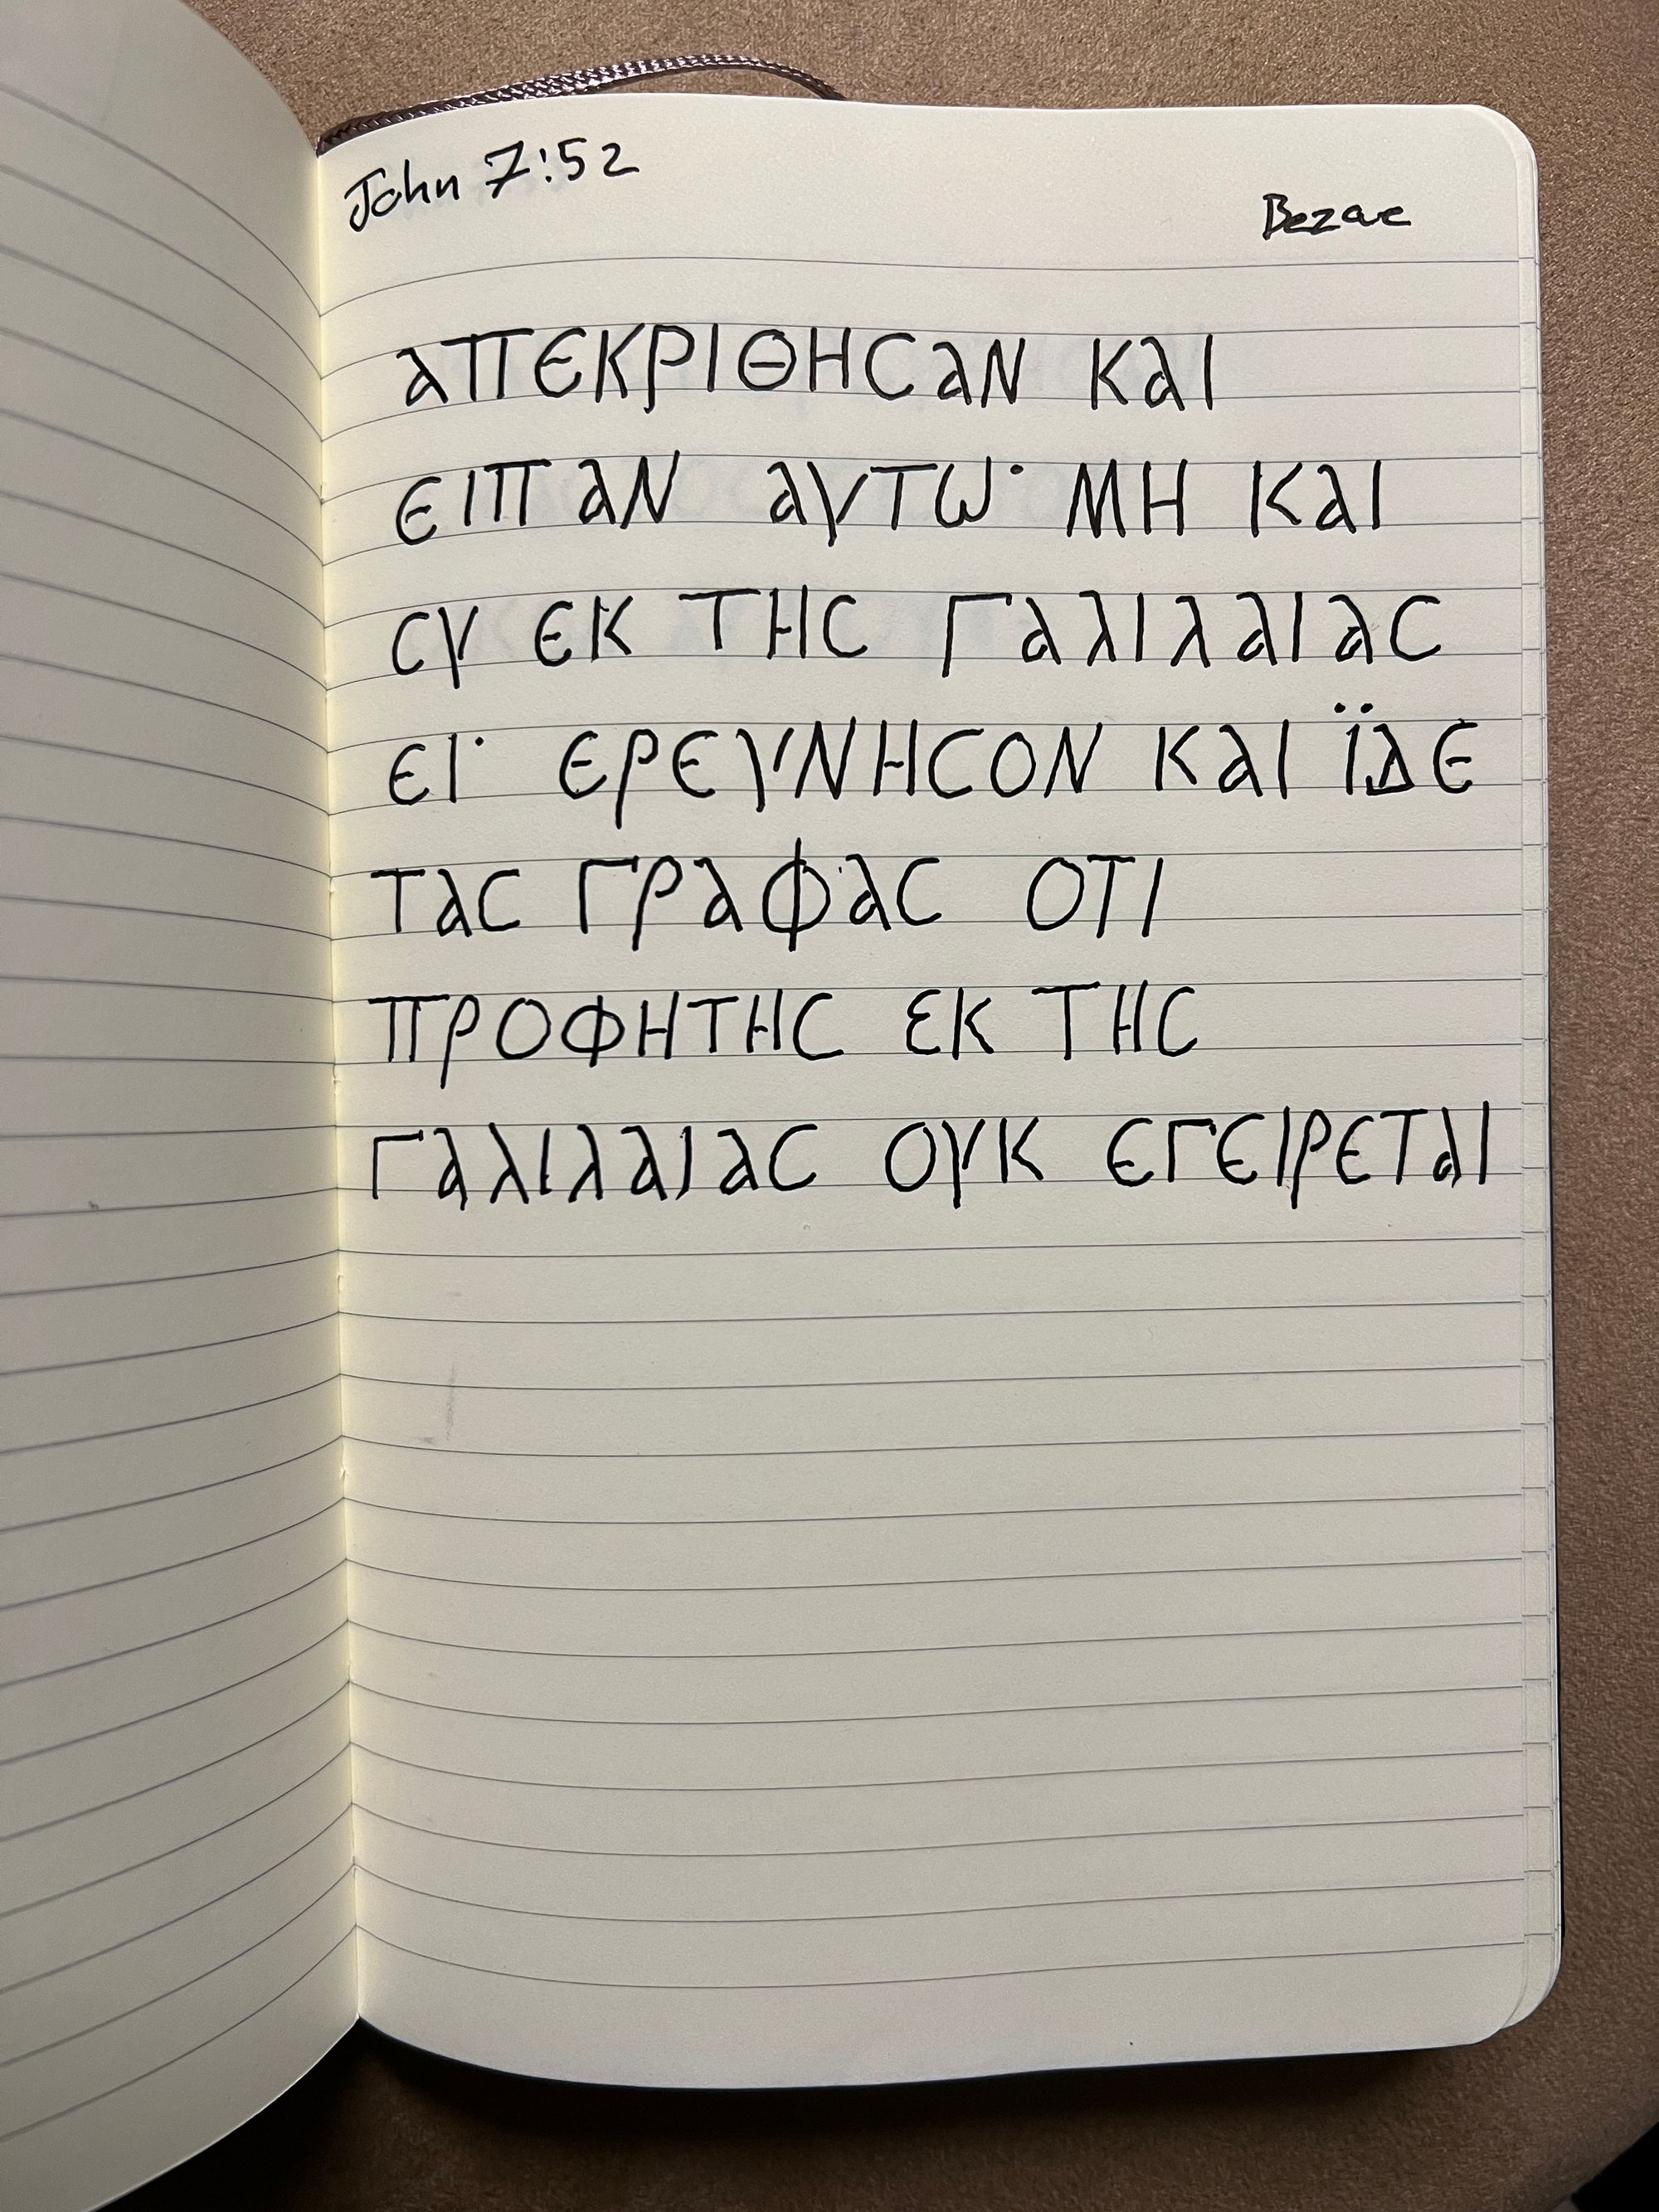 John 7:52
Bezae
ΑΠΕΚΡΙΘΗϹΑΝ ΚΑΙ
ΕΙΠΑΝ ΑΥΤΩ· ΜΗ ΚΑΙ
ϹΥ ΕΚ ΤΗϹ ΓΑΛΙΛΑΙΑϹ
ΕΙ· ΕΡΕΥΝΗϹΟΝ ΚΑΙ ΪΔΕ
ΤΑϹ ΓΡΑΦΑϹ ΟΤΙ
ΠΡΟΦΗΤΗϹ ΕΚ ΤΗϹ
ΓΑΛΙΛΑΙΑϹ ΟΥΚ ΕΓΕΙΡΕΤΑΙ